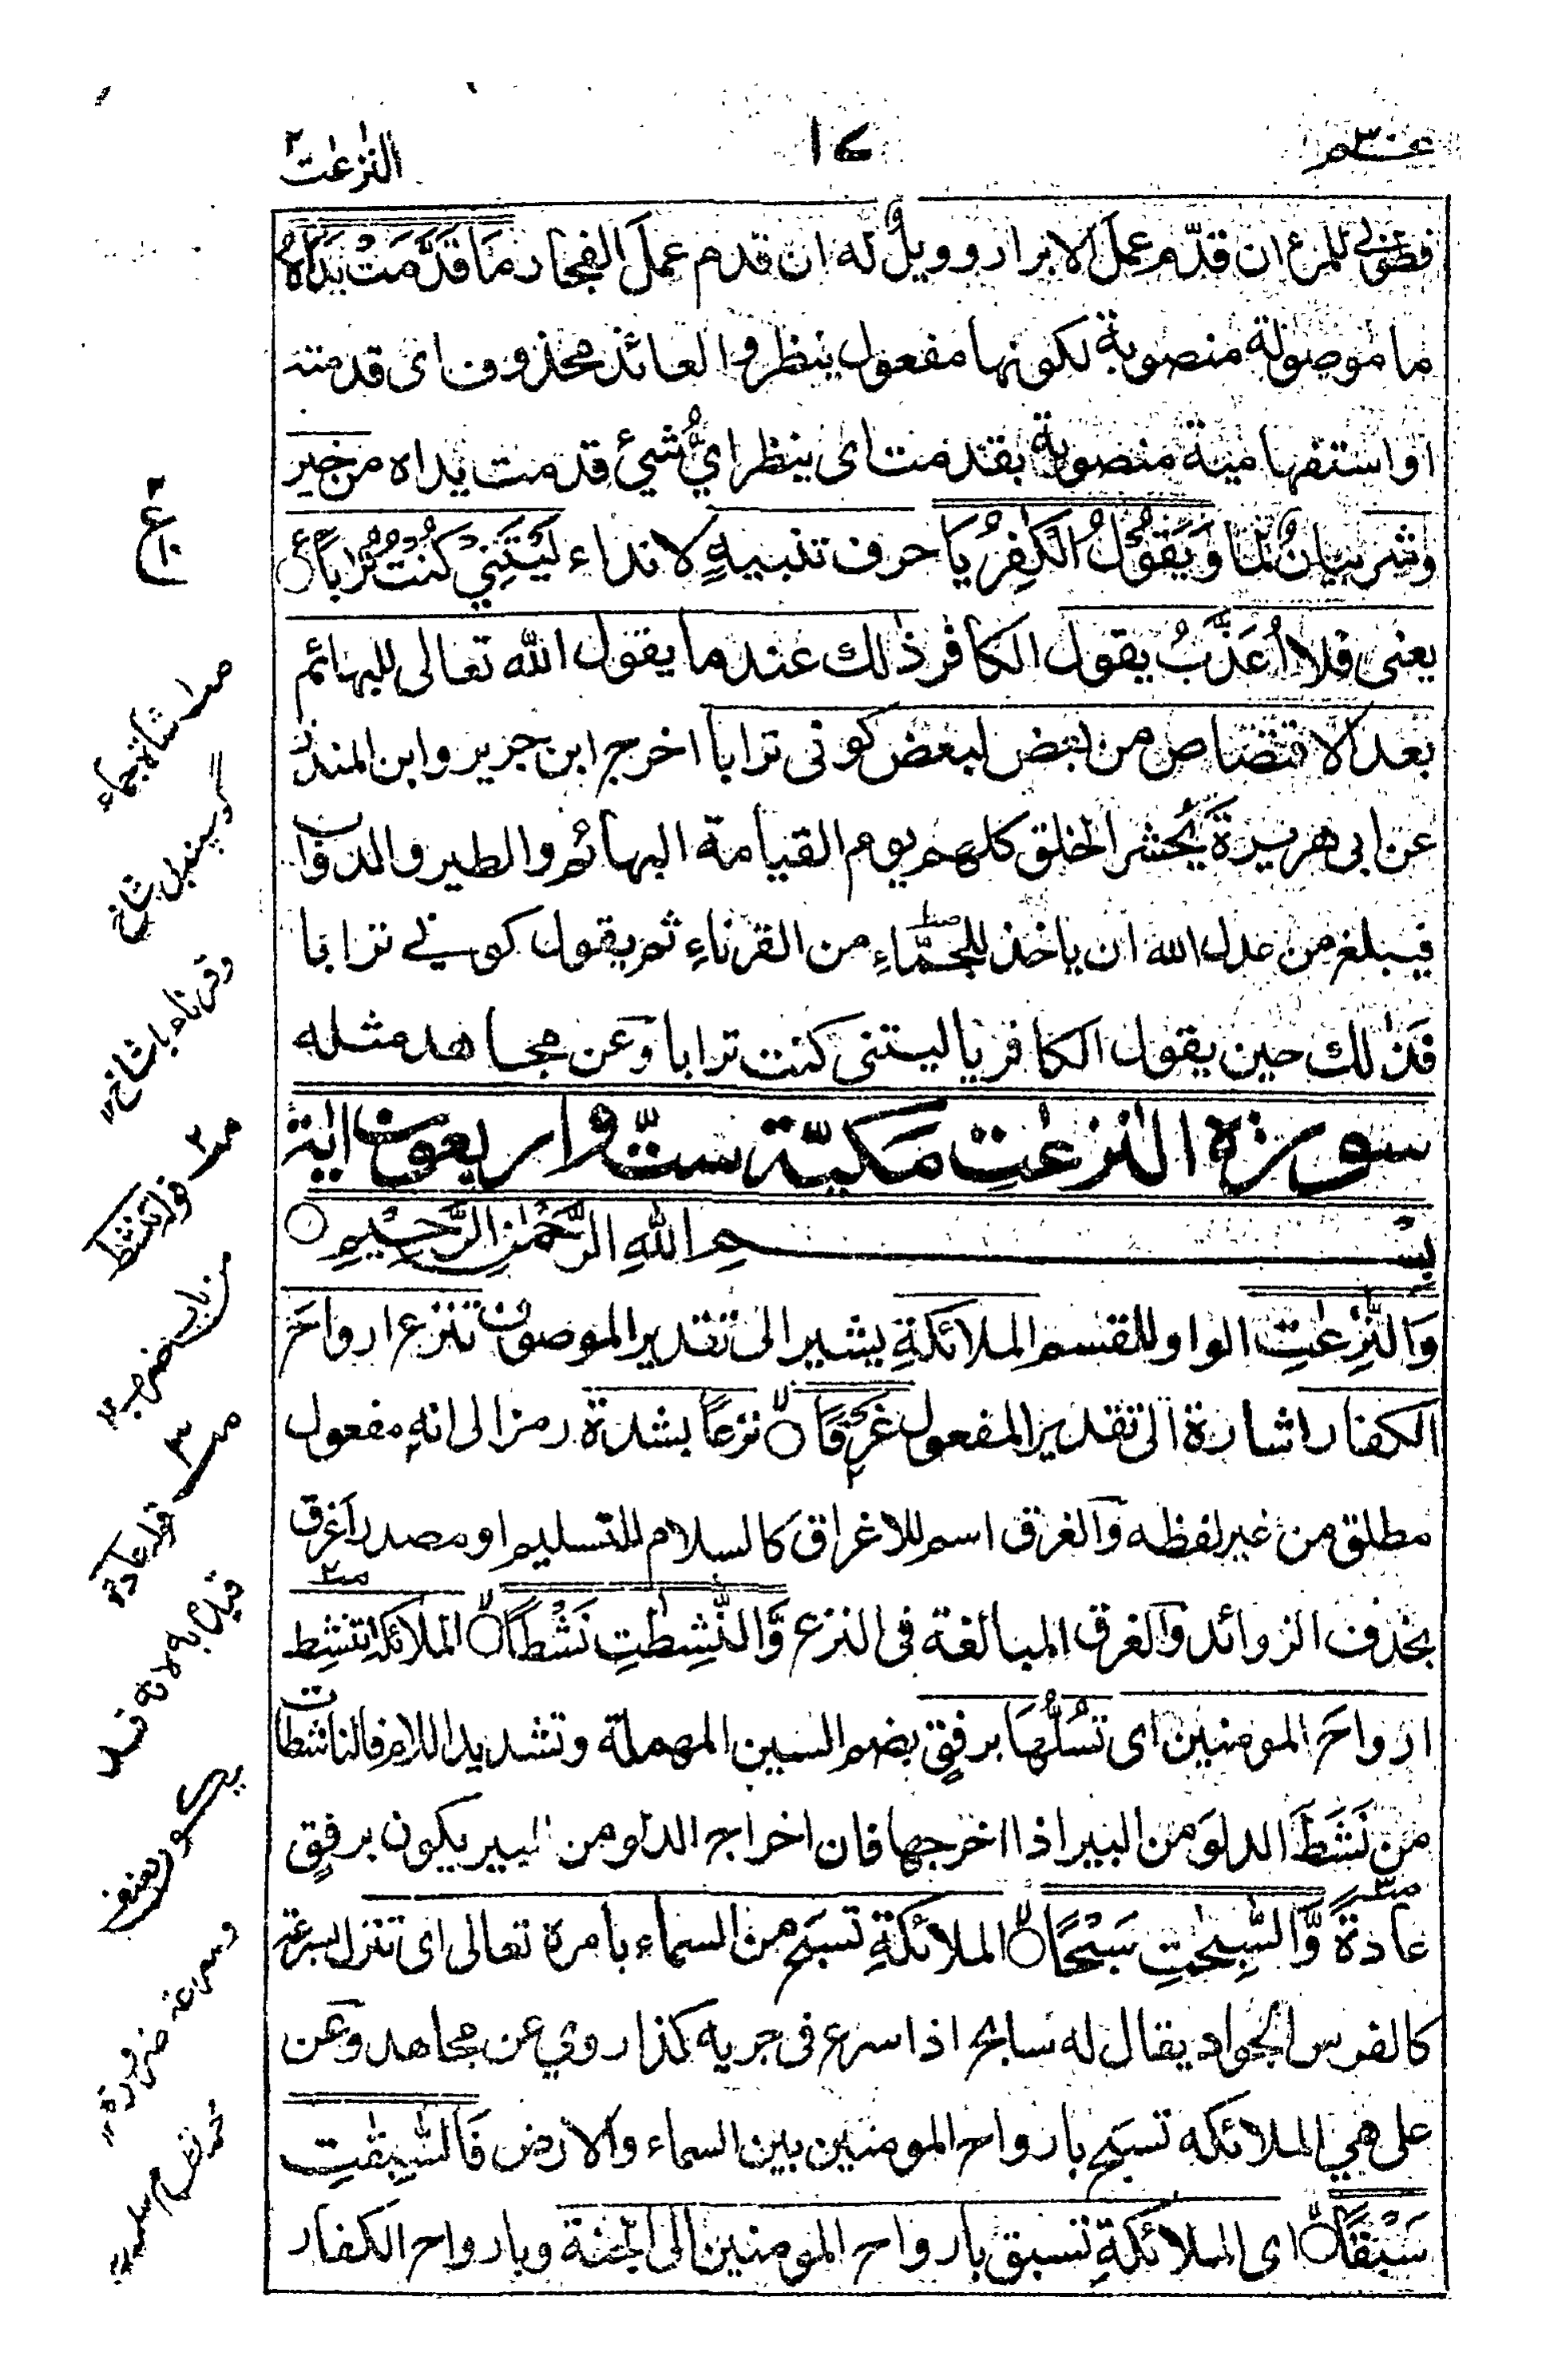 عم ٣٠
١٧
النزعت
فطوبى للمرء ان قدّم عملَ الابرار وويلٌ له ان قدم عملَ الفجار مَا قَدَّمَتْ يَدَاهُ
ما موصولة منصوبة لكونها مفعول ينظر والعائد محذوف اى قدمته
او استفهامية منصوبة بقدمت اى ينظر ايُّ شيئٍ قدمت يداه من خير
وشر بيانٌ لما وَيَقُوْلُ الْكٰفِرُ يَا حرف تنبيهٍ لا نداء لَيْتَنِيْ كُنْتُ تُرَابًا
يعنى فلا اُعَذَّبُ يقول الكافر ذلك عند ما يقول الله تعالى للبهائم
بعد الاقتصاص من بعض لبعض كونى ترابا اخرج ابن جرير وابن المنذر
عن ابى هريرة يُحشر الخلق كلهم يوم القيامة البهائم والطير والدواب
فيبلغ من عدل الله ان ياخذ للجمّاءِ من القرناءِ ثم يقول كونى ترابا
فذلك حين يقول الكافر ياليتنى كنت ترابا وعن مجاهد مثله
سورة النزعت مكيّة ستّ واربعون اية
بِسْمِ اللهِ الرَّحْمٰنِ الرَّحِيْمِ
وَالنّٰزِعٰتِ الواو للقسم الملائكةِ يشير الى تقدير الموصوف تنزع ارواحَ
الكفار اشارة الى تقدير المفعول غَرْقًا نزعًا بشدة رمز الى انه مفعول
مطلق من غير لفظه والغرق اسم للاغراق كالسلام للتسليم او مصدر اَغرق
بحذف الزوائد والغرق المبالغة فى النزع وَّالنّٰشِطٰتِ نَشْطًا الملائكة تنشِط
ارواحَ المومنين اى تسُلُّهَا برفقٍ بضم السين المهملة وتشديد اللام فالناشطات
من نَشَطَ الدلوَ من البير اذا اخرجها فان اخراج الدلو من البير يكون برفقٍ
عادةً وَّالسّٰبِحٰتِ سَبْحًا الملائكةِ تسبَح من السماء بامره تعالى اى تنزل بسرعة
كالفرس الجواد يقال له سابح اذا سرع فى جريه كذا روي عن مجاهد وعن
على هي الملائكه تسبَح بارواح المومنين بين السماء والارض فَالسّٰبِقٰتِ
سَبْقًا اى الملائكةِ تسبق بارواح المومنين الى الجنة وبارواح الكفار
ع
صـ١ شاة جماء
گوسپند بى شاخ
وقرناء با شاخ ١٢
صـ٢ قوله تنشط
من باب ضرب ١٢
صـ٣ قوله عادة